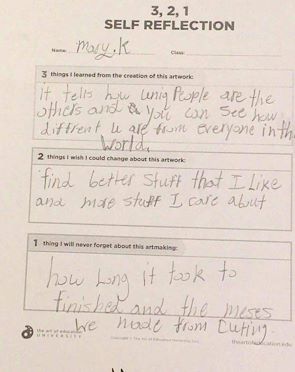 3, 2, 1
SELF REFLECTION
Name: Mary.K Class:
3 things I learned from the creation of this artwork:
it tells how uniq People are the
others and & you can see how
diffrent u are from everyone in the
World.
2 things I wish I could change about this artwork:
find better stuff that I Like
and more stuff I care about
1 thing I will never forget about this artmaking:
how Long it took to
finished and the meses
We made from Cuting.
the art of education
UNIVERSITY
Copyright © The Art of Education University, LLC
theartofeducation.edu